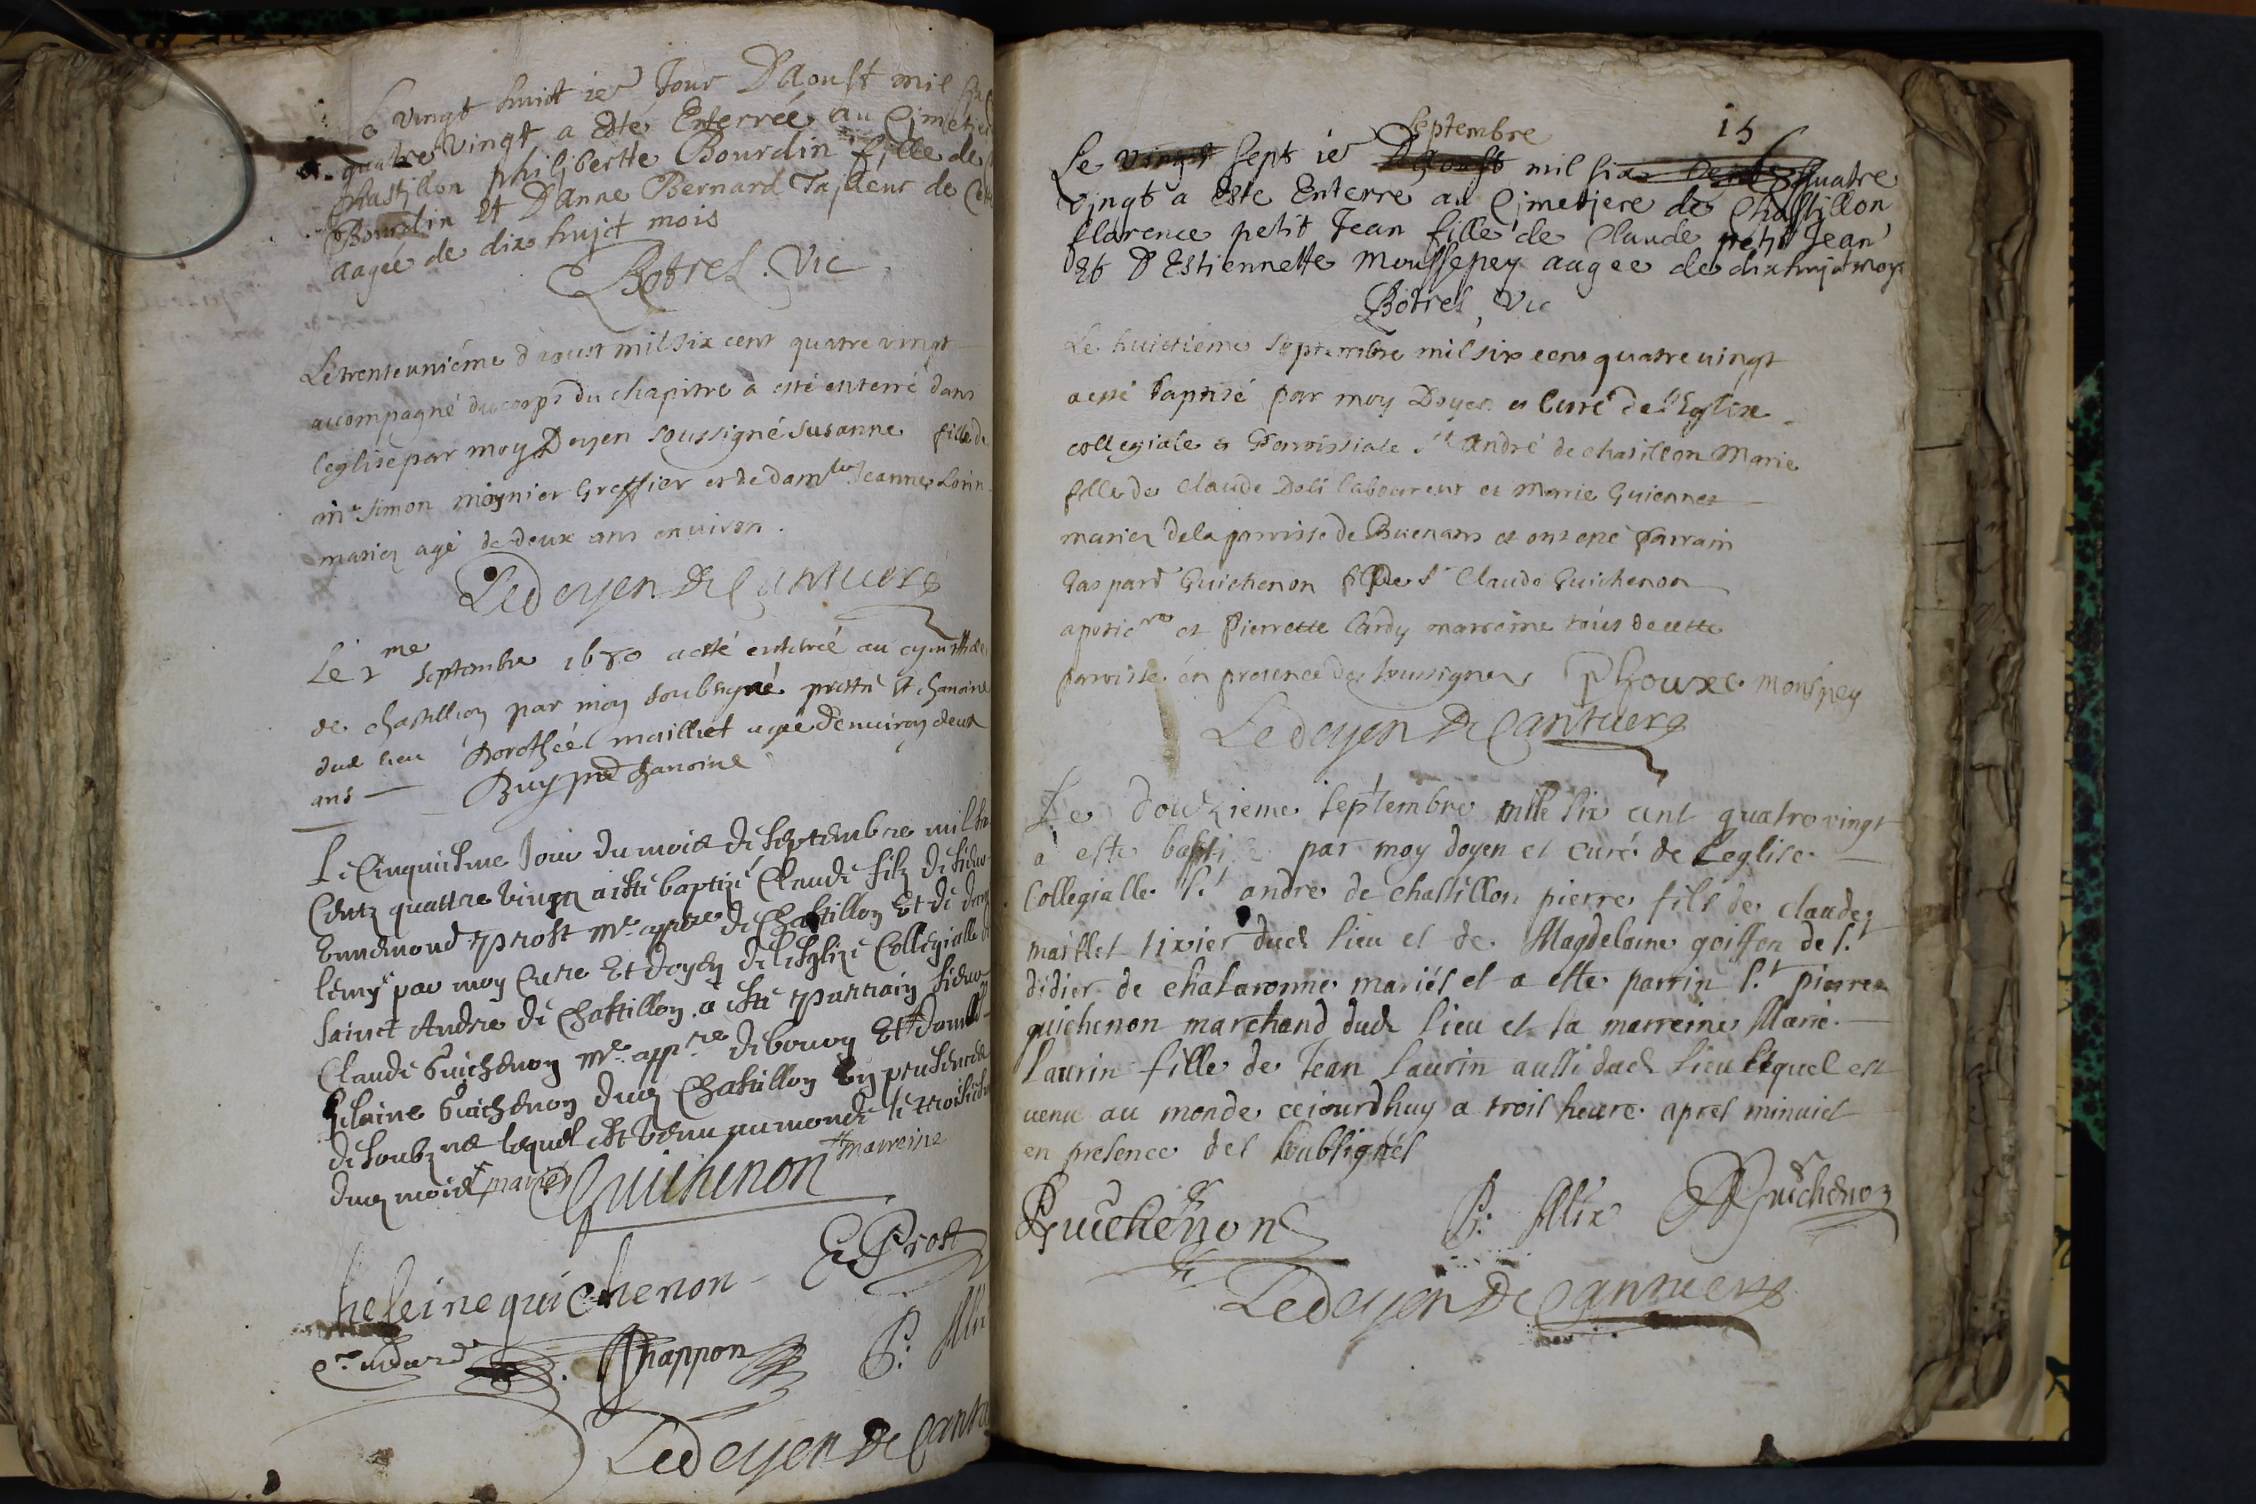 vingt huict ie Jour D'Aoust mil
quatre vingt a Esté Enterrée au Cimetiere
Chastillon philiberte Bourdin fille de
Bourdin et D'Anne Bernard Tailleur de
aagée de dix huict mois
Botrel. Vic
Le trente uniéme d'aoust mil six cent quatre vingt
accompagné du corps du chapitre a esté enterré dans
l'eglise par moy Doyen soussigné Susanne fille de
mr. Simon moynier Greffier et de damlle Jeanne Lorin
mariez agé de deux ans environ.
Le doyen De Cantuers
Le 2me septembre 1680 a esté enterré au cymettiere
de chastillion par moy soubsigné prettre et chanoine
dud lieu Dorothée mailliet agée d'environ deux
ans — Buy pre chanoine
Le Cinquiesme Jour du mois de septembre mil
Centz quattre vingtz a esté baptizé Claude filz de sieur
Ennemond Prost Me. appre de Chastillon Et de dam
Remy par moy Curé Et doyen de l'Esglize Collegialle
sainct Andre de Chastillon a esté parrain sieur
Claude Guichenon Me. appre de bourg Et damlle
helaine Guichenon dud Chastillon En presence
de soubz nez lequel est venu au monde le troisie
dud mois mariez
# marreine
Guichenon
heleine guichenon
E. Prost
Chappon
P: Alix
Le doyen De Cant
15
septembre
Le vingt sept ie D'Aoust mil six Cent quatre
vingt a Este Enterré au Cimetiere de Chastillon
florence petit Jean fille de Claude petit Jean
Et D'Estiennette moussepey aagee de dix huict moys
Botrel, Vic
Le huictiéme Septembre mil six cens quatre vingt
a esté baptisé par moy Doyen et Curé de l'Eglise
collegiale et Parroissiale St André de chastillon Marie
fille de Claude Doli laboureur et Marie Guiennet
mariez de la parroisse de Buenans et ont esté Parrain
Gaspard Guichenon fils de Sr Claude Guichenon
apoticre et Pierrette Cardy marreine tous de cette
parroisse en presence des soussignez Phouxe monspey
Le doyen De Cantuers
Le douzieme septembre mille six cent quatre vingt
a este baptise par moy doyen et curé de l'eglise
Collegialle St. andre de chastillon pierre fils de claude
maillet tixier dud lieu et de Magdelaine goiffon de St.
didier de chalaronne mariés et a este parrin Sr. pierre
guichenon marchand dud lieu et la marreine Marie
Laurin fille de Jean Laurin aussi dud lieu lequel est
venu au monde cejourdhuy a trois heure apres minuict
en presence des soubsignés
Guichenon
P: Alix
Guichenon
Le doyen De Cantuers